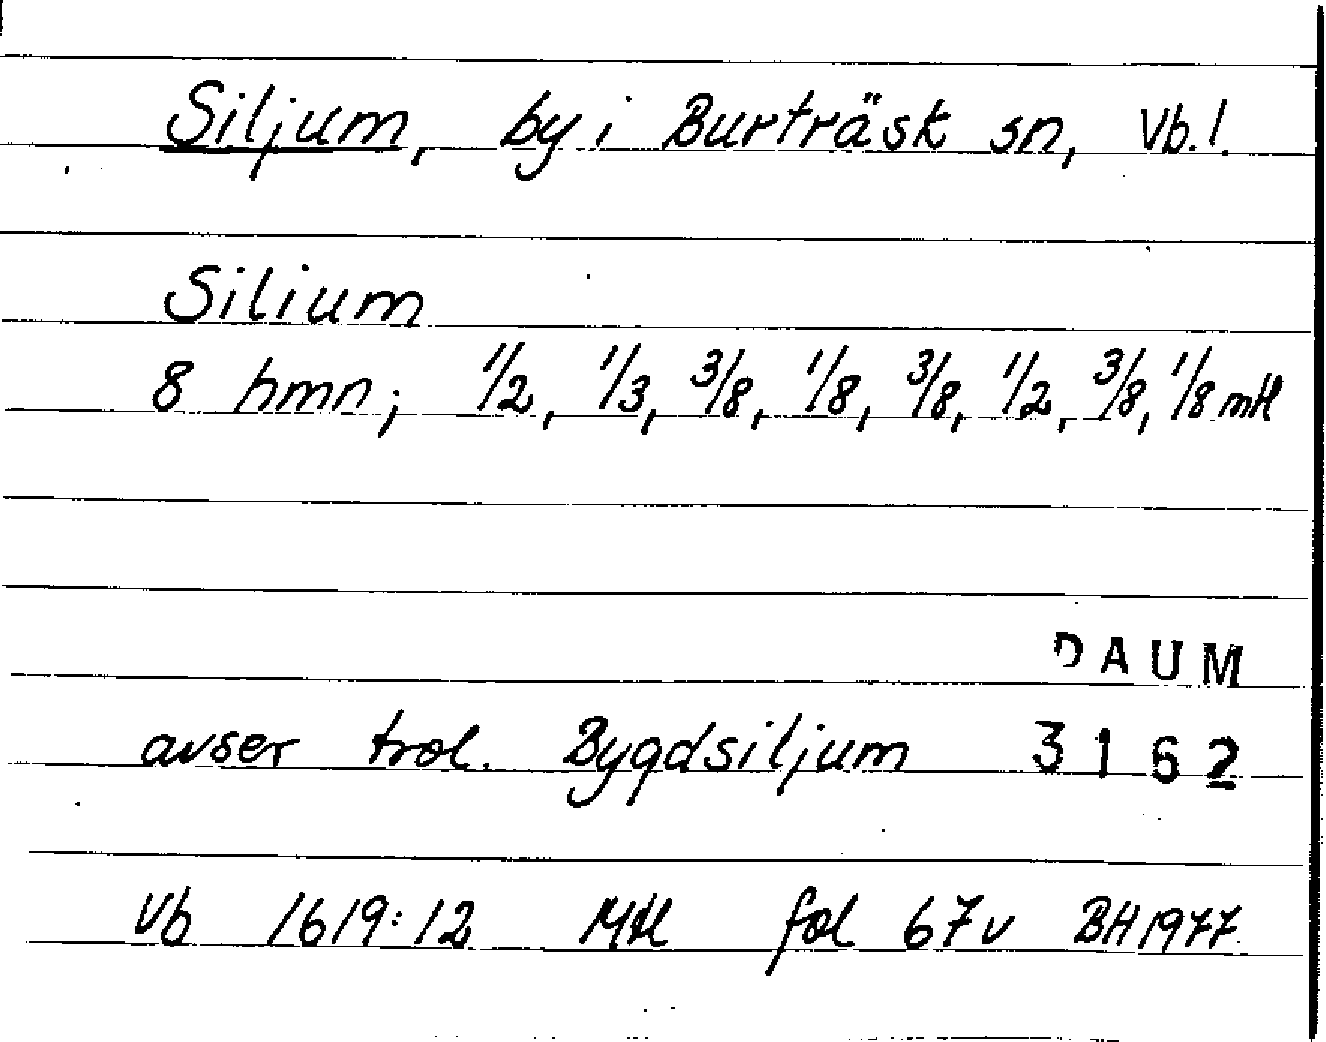 Siljum, by i Burträsk sn, Vb. l.
Silium
8 hmn; 1/2, 1/3, 3/8, 1/8, 3/8, 1/2, 3/8, 1/8 mtl
DAUM
avser trol. Bygdsiljum 3162
Vb 1619:12 Mtl fol 67v BH 1977.